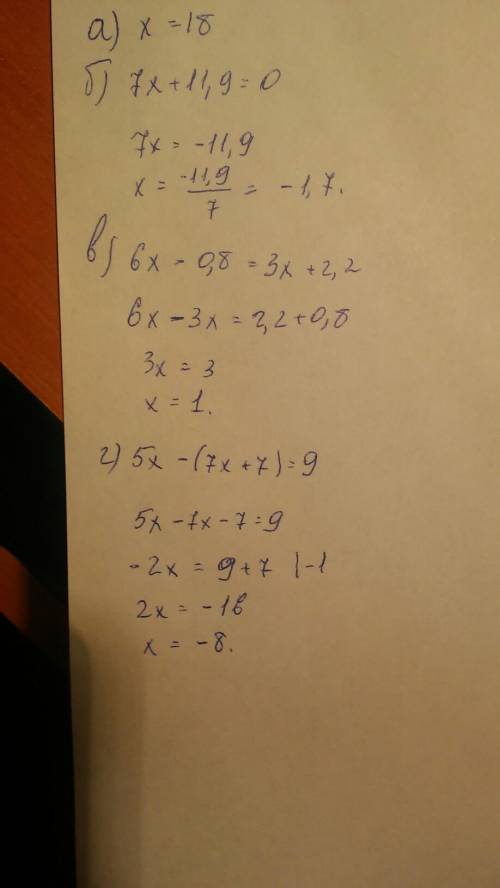 а) x = 18
б) 7x + 11,9 = 0
7x = -11,9
x = -11,9/7 = -1,7.
в) 6x - 0,8 = 3x + 2,2
6x - 3x = 2,2 + 0,8
3x = 3
x = 1.
г) 5x - (7x + 7) = 9
5x - 7x - 7 = 9
-2x = 9 + 7 |-1
2x = -16
x = -8.